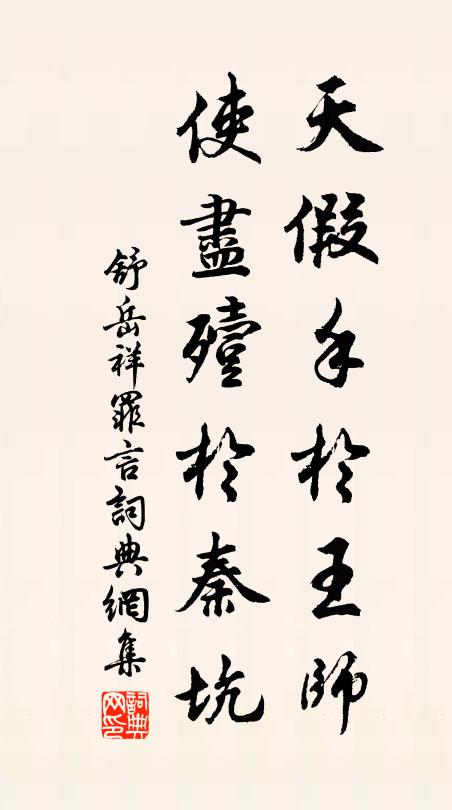 天假手於王師
使盡殪於秦坑
舒岳祥罪言詞典網集
詞典网印